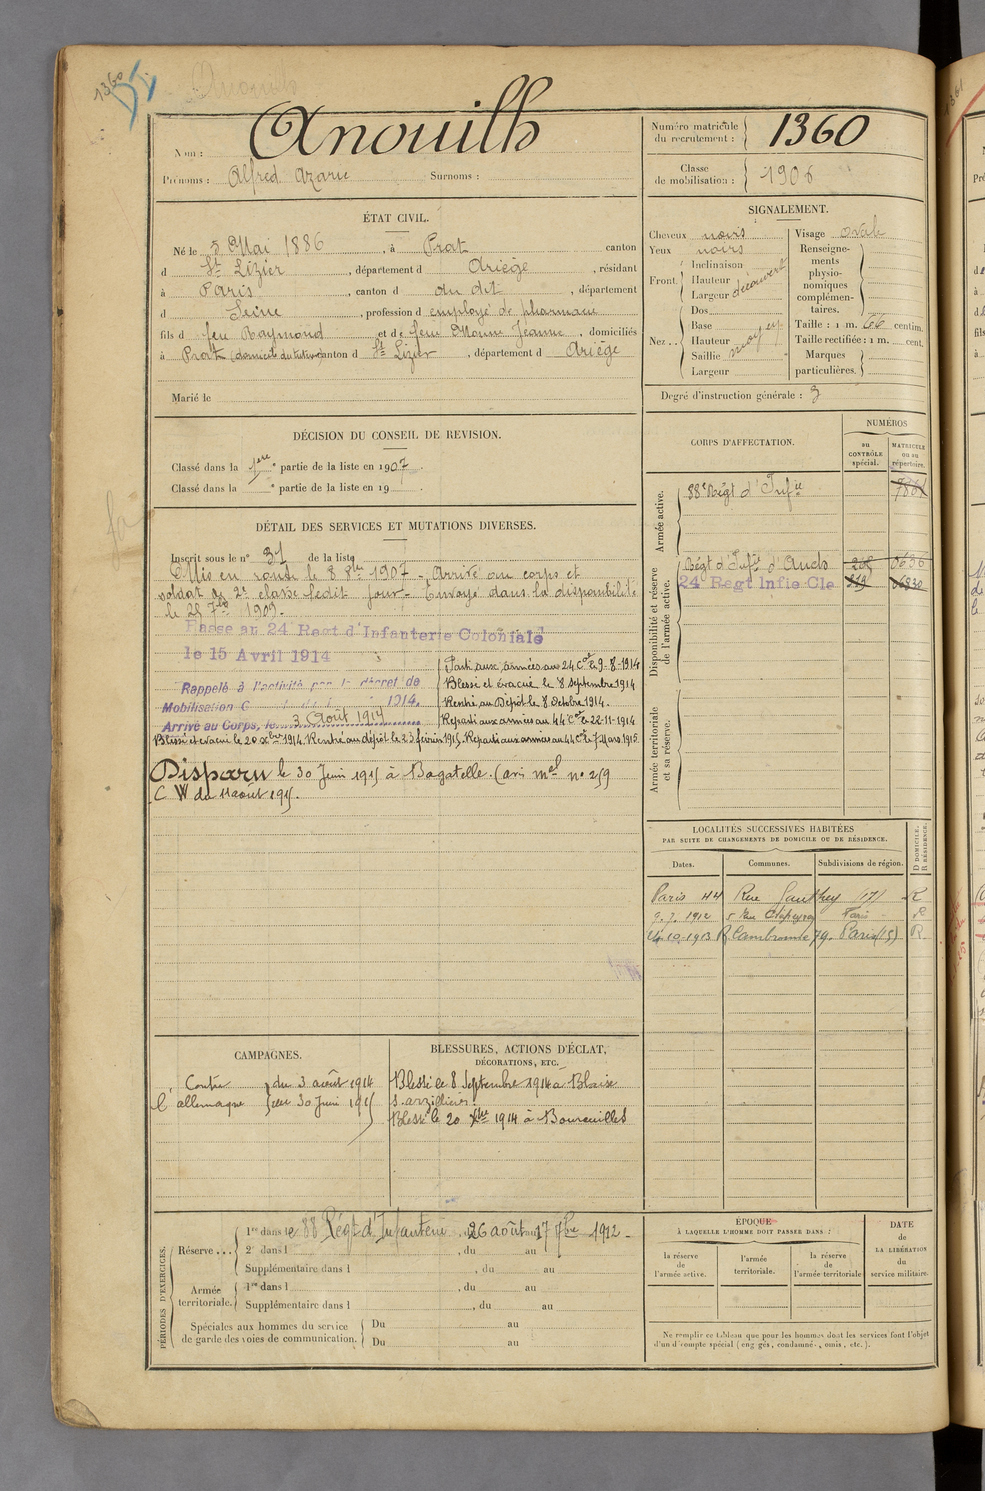 1360
Anouilh
Nom : Anouilh
Prénoms : Alfred Azarie Surnoms :
Numéro matricule du recrutement : 1360
Classe de mobilisation : 1906
ÉTAT CIVIL.
Né le 5 Mai 1886, à Prat canton
d St Lizier, département d Ariège, résidant
à Paris, canton d du dit, département
d Seine, profession d employé de pharmacie
fils d feu Raymond et de feue Jeanne, domiciliés
à Prat (domicile du tuteur) canton d St Lizier, département d Ariège
Marié le
SIGNALEMENT.
Cheveux noirs
Yeux noirs
Front. Inclinaison
Hauteur découvert
Largeur
Nez.. Dos
Base
Hauteur moy
Saillie
Largeur
Visage ovale
Renseignements physionomiques complémentaires.
Taille : 1 m. 66 centim.
Taille rectifiée : 1 m. cent.
Marques particulières.
Degré d'instruction générale : 3
DÉCISION DU CONSEIL DE REVISION.
Classé dans la 1ère partie de la liste en 1907.
Classé dans la e partie de la liste en 19
DÉTAIL DES SERVICES ET MUTATIONS DIVERSES.
Inscrit sous le n° 31 de la liste
Mis en route le 8 8bre 1907 - Arrivé au corps et
soldat de 2e classe ledit jour - Envoyé dans la disponibilité
le 25 7bre 1909.
Passé au 24 Regt d'Infanterie Coloniale
le 15 Avril 1914
Rappelé à l'activité par le décret de
Mobilisation 1914.
Arrivé au Corps, le 3 Août 1914
Parti aux armées au 24 Cal le 9-8-1914
Blessé et évacué le 8 septembre 1914
Rentré au Dépôt le 8 octobre 1914.
Reparti aux armées au 44 Cal le 22-11-1914
Blessé et évacué le 20 Xbre 1914. Rentré au dépôt le 23 février 1915. Reparti aux armées au 44 Cal le 7 Mars 1915.
Disparu le 30 Juin 1915 à Bagatelle. (avis mel n° 259
C W du 11 août 1915.
CORPS D'AFFECTATION.
NUMÉROS
au CONTRÔLE spécial.
MATRICULE ou au répertoire.
Armée active.
88e Régt d'Infie
Disponibilité et réserve de l'armée active.
Régt d'Infie d'Auch 0636
24 Regt Infie Cle
Armée territoriale et sa réserve.
LOCALITÉS SUCCESSIVES HABITÉES
PAR SUITE DE CHANGEMENTS DE DOMICILE OU DE RÉSIDENCE.
Dates. Communes. Subdivisions de région. D DOMICILE. R RÉSIDENCE.
Paris 44 Rue Gauthey (17) R
7.7.1912 5 Rue Clapeyron Paris R
14-10-1913 R Cambronne 79. Paris (15) R.
CAMPAGNES.
Contre l'allemagne du 3 août 1914
au 30 Juin 1915
BLESSURES, ACTIONS D'ÉCLAT,
DÉCORATIONS, ETC.
Blessé le 8 Septembre 1914 à Blaise
s. arzillieres
Blessé le 20 Xbre 1914 à Boureuilles
PÉRIODES D'EXERCICES.
Réserve... 1re dans le 88 Régt d'Infanterie, du 26 août au 17 7bre 1912 -
2e dans l , du au
Supplémentaire dans l , du au
Armée territoriale. 1re dans l , du au
Supplémentaire dans l , du au
Spéciales aux hommes du service de garde des voies de communication. Du au
Du au
ÉPOQUE
À LAQUELLE L'HOMME DOIT PASSER DANS :
la réserve de l'armée active.
l'armée territoriale.
la réserve de l'armée territoriale
DATE de LA LIBÉRATION du service militaire.
Ne remplir ce tableau que pour les hommes dont les services font l'objet
d'un décompte spécial (engagés, condamnés, omis, etc.).